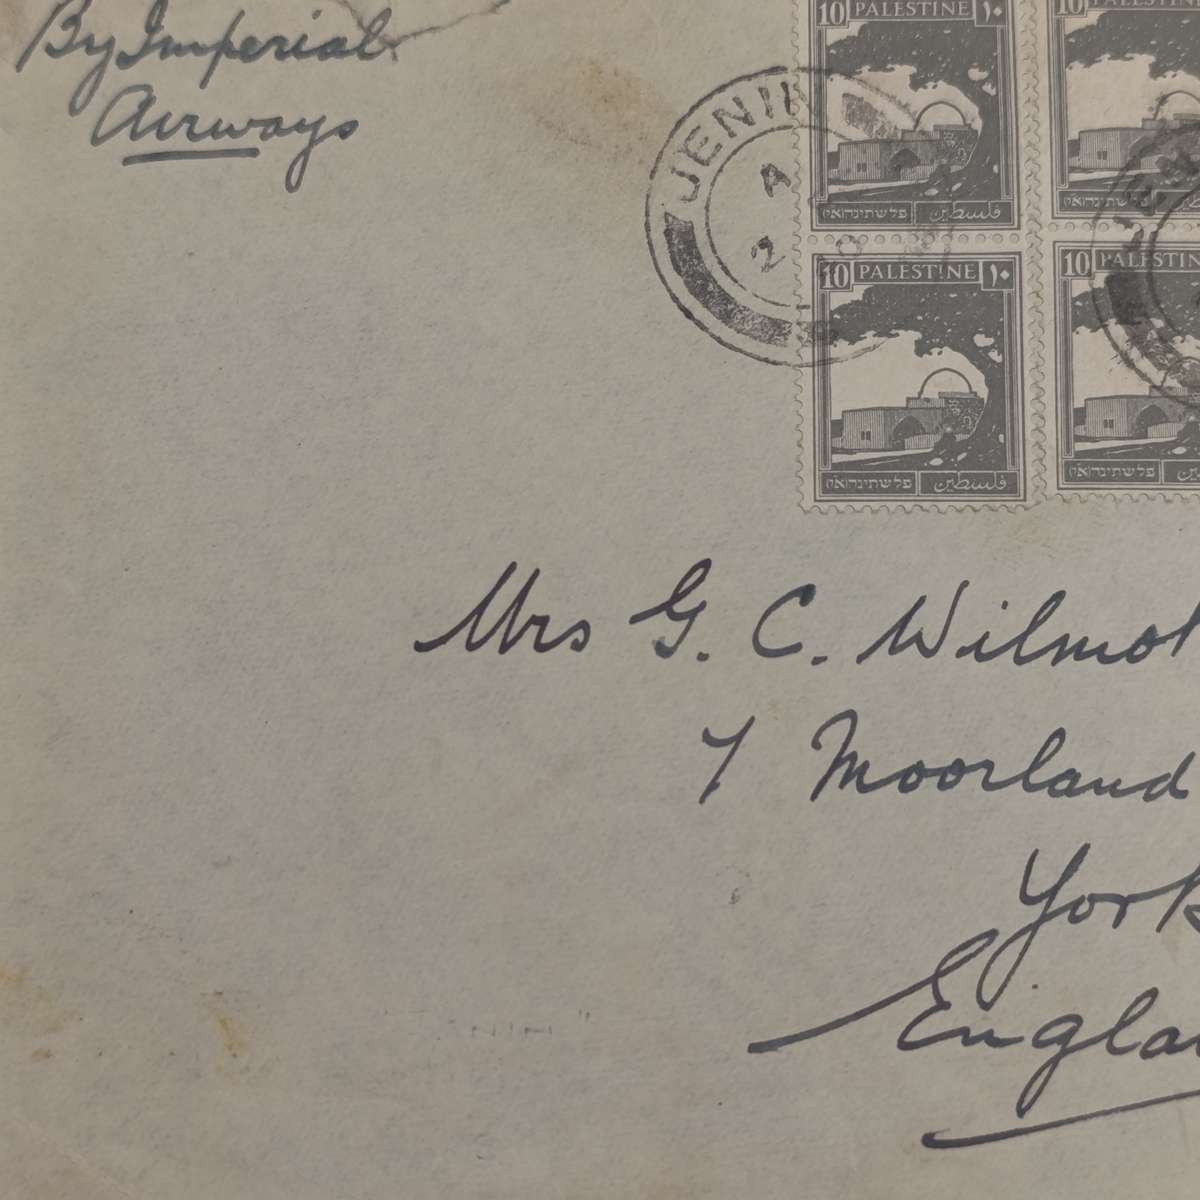 By Imperial
Airways
10 PALESTINE ١٠
פלשתינה (א״י) فلسطين
10 PALESTINE
פלשתינה (א״י)
JENIN
A
2
10 PALESTINE ١٠
פלשתינה (א״י) فلسطين
10 PALESTINE
פלשתינה (א״י)
Mrs G. C. Wilmot
7 Moorland
York
England